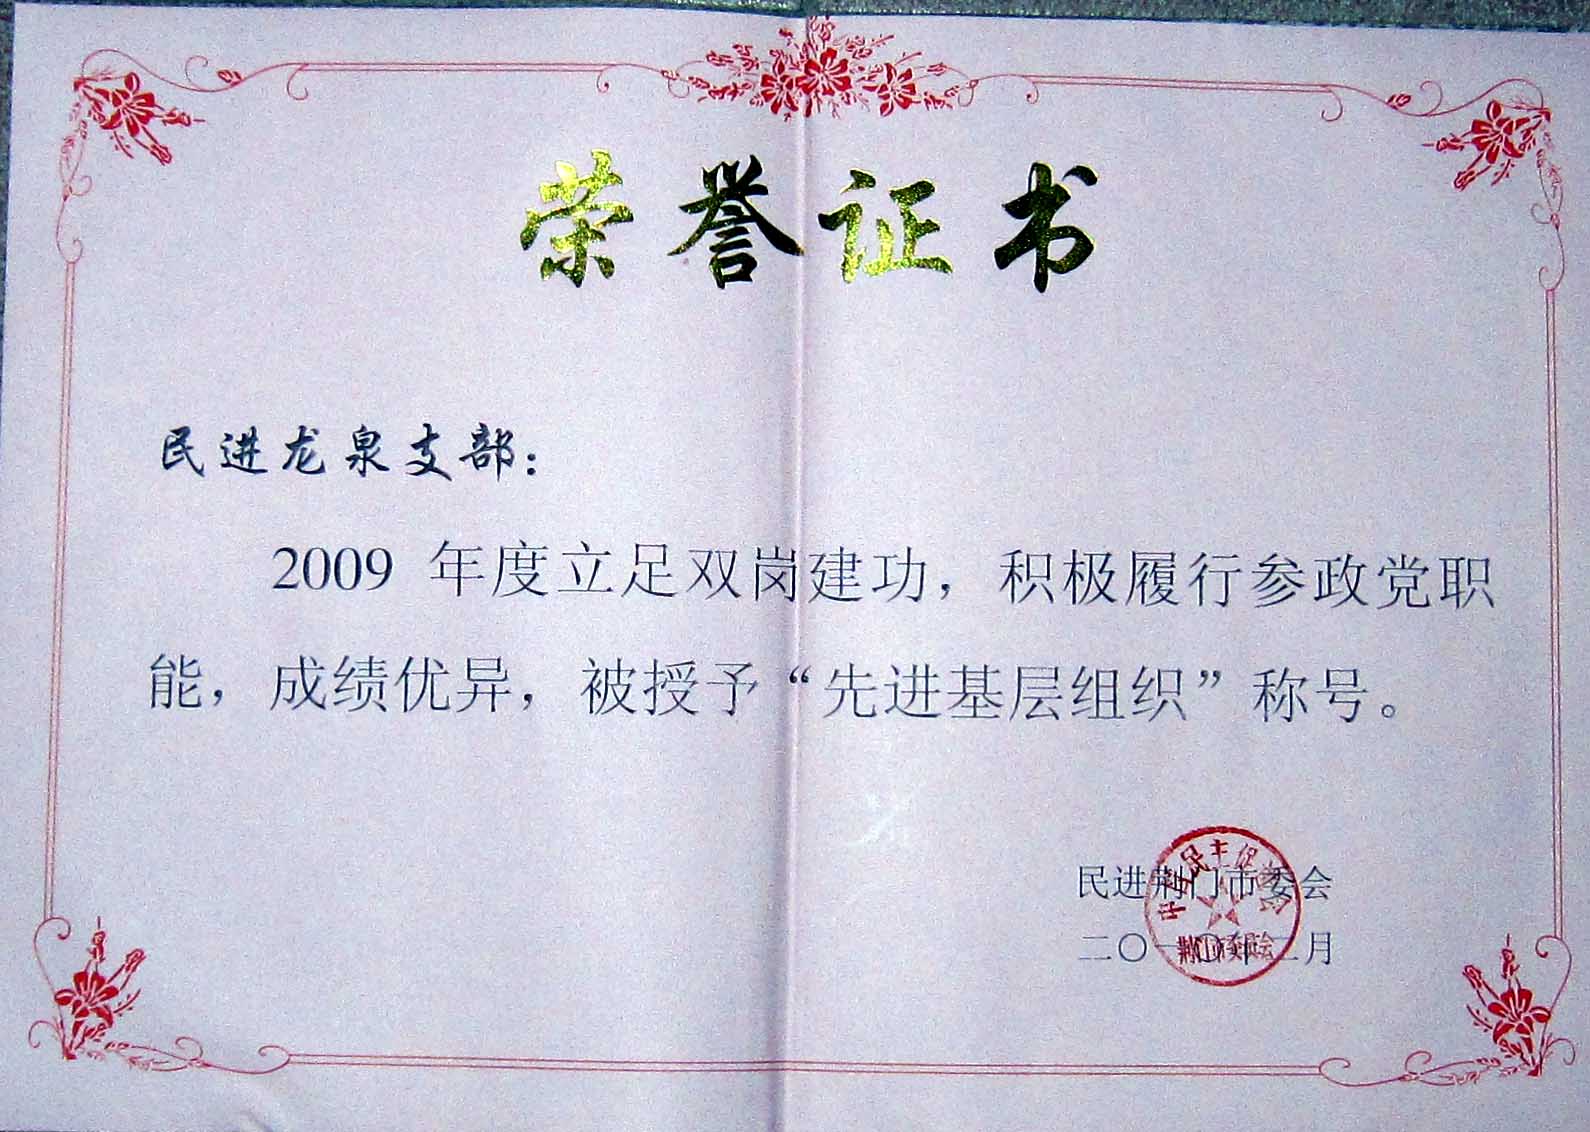 荣誉证书
民进龙泉支部：
2009 年度立足双岗建功，积极履行参政党职
能，成绩优异，被授予“先进基层组织”称号。
民进荆门市委会
二〇一〇年二月
中国民主促进会
荆门市委员会